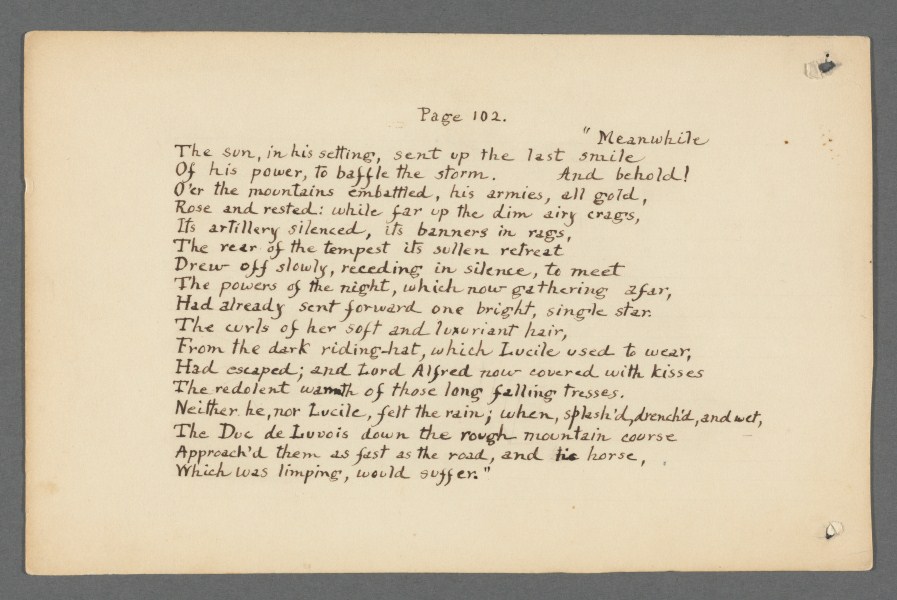 Page 102.
"Meanwhile
The sun, in his setting, sent up the last smile
Of his power, to baffle the storm. And behold!
O'er the mountains embattled, his armies, all gold,
Rose and rested: while far up the dim airy crags,
Its artillery silenced, its banners in rags,
The rear of the tempest its sullen retreat
Drew off slowly, receding in silence, to meet
The powers of the night, which now gathering afar,
Had already sent forward one bright, single star.
The curls of her soft and luxuriant hair,
From the dark riding-hat, which Lucile used to wear,
Had escaped; and Lord Alfred now covered with kisses
The redolent warmth of those long falling tresses.
Neither he, nor Lucile, felt the rain; when, splash'd, drench'd, and wet,
The Duc de Luvois down the rough mountain course
Approach'd them as fast as the road, and his horse,
Which was limping, would suffer."